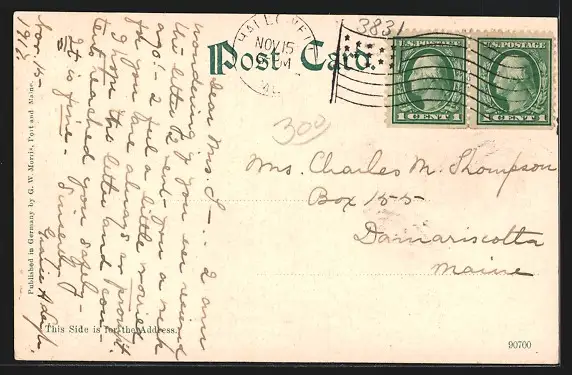 Post Card.
HALLOWELL
NOV 15
PM
3831
U.S. POSTAGE
1 CENT 1
U.S. POSTAGE
1 CENT 1
300
Mrs. Charles M. Thompson
Box 155
Damariscotta
Maine
Dear Mrs. T—. I am
wondering if you ever received
the letter I sent you a week
ago! I feel a little worried
for you are always so prompt.
I hope the letter and con-
tents reached you safely—
It is fine— Sincerely
Nov. 14
1912
Published in Germany by G. W. Morris, Portland Maine.
This Side is for the Address.
90700